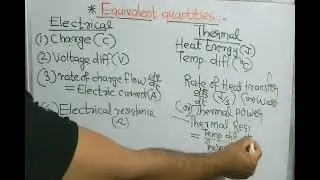 * Equivalent quantities :-
Electrical
Thermal
(1) Charge (C)
Heat Energy (J)
(2) Voltage diff (V)
Temp. diff.
(3) rate of charge flow dq/dt
= Electric current (A)
Rate of Heat transfer
(J/s) (or) Watt
(or) Thermal Power
Electrical resistance
(Ω)
Thermal Resi
= Temp. diff